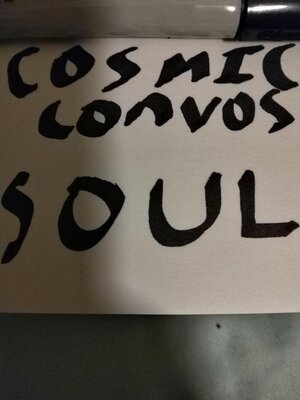 COSMIC
CONVOS
SOUL